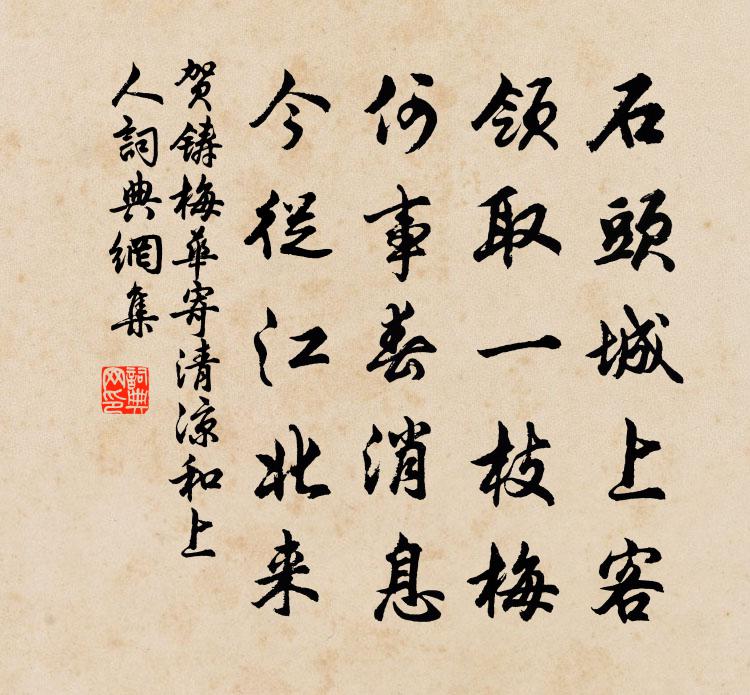 石頭城上客
領取一枝梅
何事春消息
今從江北来
贺鑄梅華寄清凉和上
人詞典網集
詞典网印